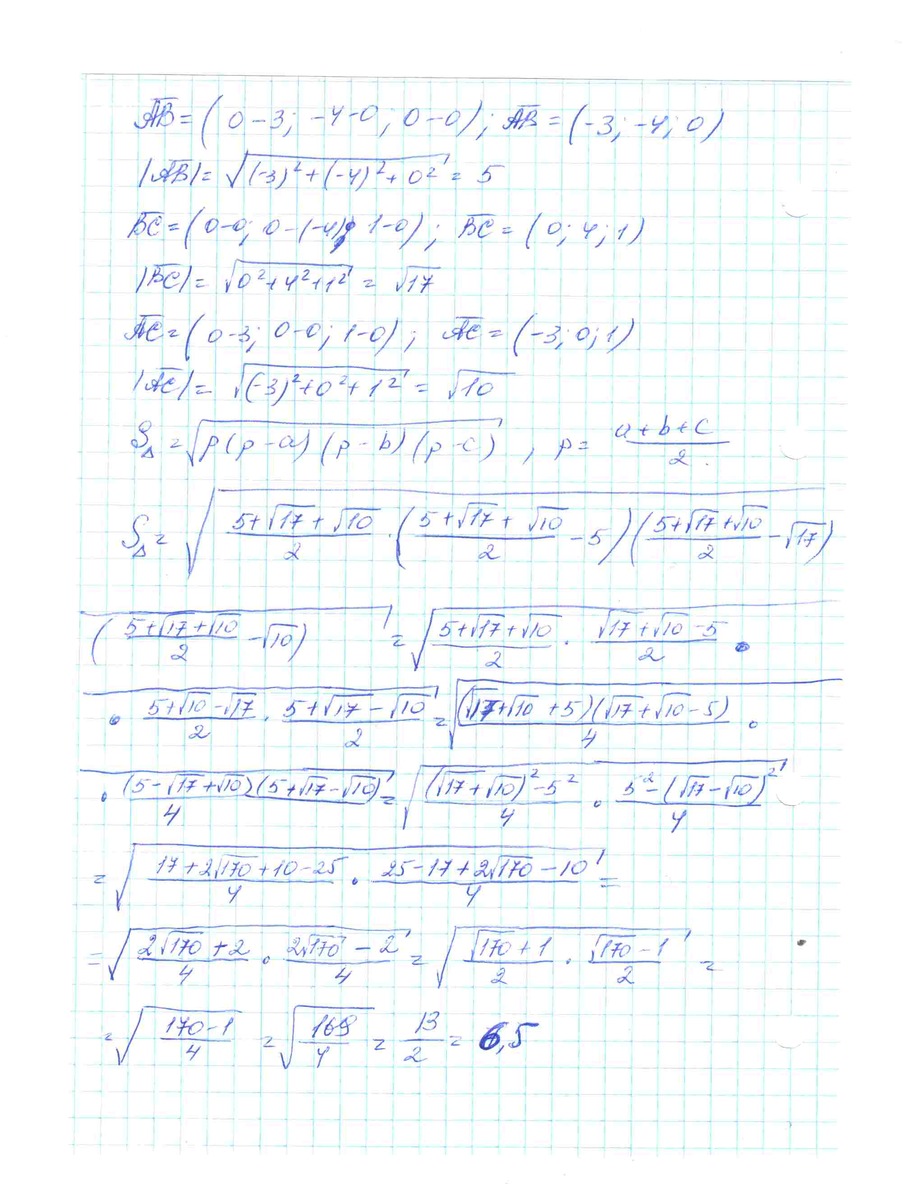 A̅B̅=(0-3; -4-0; 0-0); A̅B̅=(-3; -4; 0)
|A̅B̅|=√((-3)²+(-4)²+0²) = 5
B̅C̅=(0-0; 0-(-4); 1-0); B̅C̅=(0; 4; 1)
|B̅C̅|=√(0²+4²+1²) = √17
A̅C̅=(0-3; 0-0; 1-0); A̅C̅=(-3; 0; 1)
|A̅C̅|=√((-3)²+0²+1²) = √10
S△=√(p(p-a)(p-b)(p-c)), p= (a+b+c)/2.
S△=√((5+√17+√10)/2·((5+√17+√10)/2-5)((5+√17+√10)/2-√17)
((5+√17+√10)/2-√10))=√((5+√17+√10)/2·(√17+√10-5)/2·
·(5+√10-√17)/2·(5+√17-√10)/2)=√((√17+√10+5)(√17+√10-5)/4·
·(5-√17+√10)(5+√17-√10)/4)=√(((√17+√10)²-5²)/4·(5²-(√17-√10)²)/4)
=√((17+2√170+10-25)/4·(25-17+2√170-10)/4)=
=√((2√170+2)/4·(2√170-2)/4)=√((√170+1)/2·(√170-1)/2)=
=√((170-1)/4)=√(169/4)=13/2=6,5